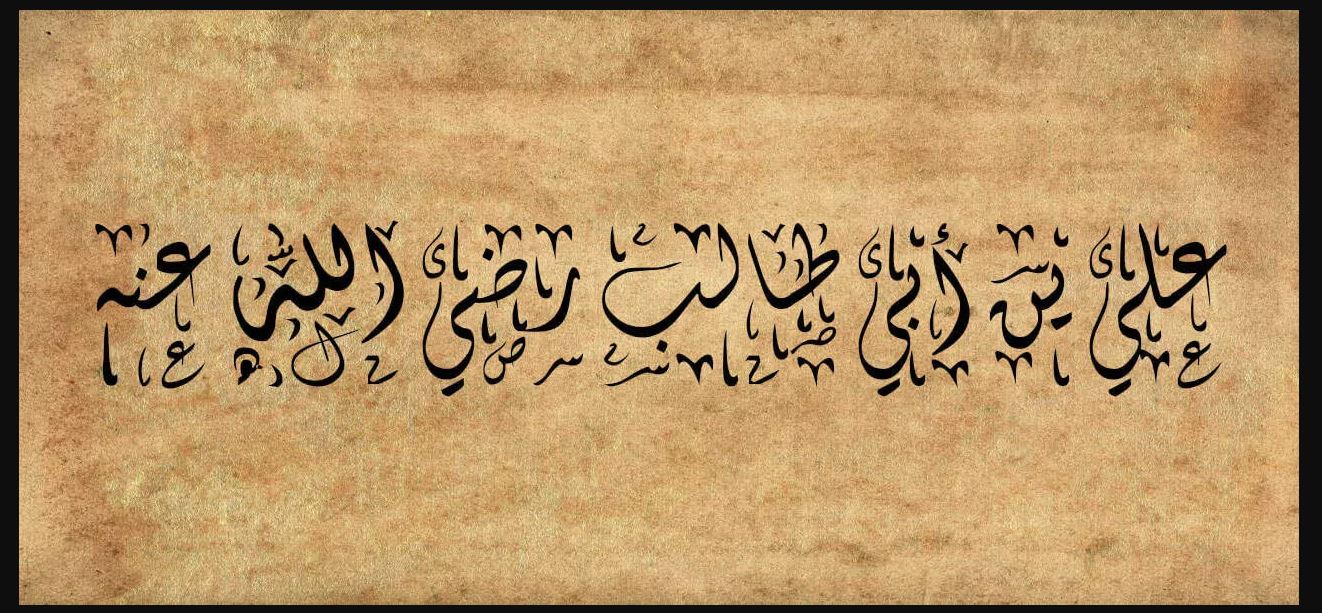 علي بن أبي طالب رضي الله عنه